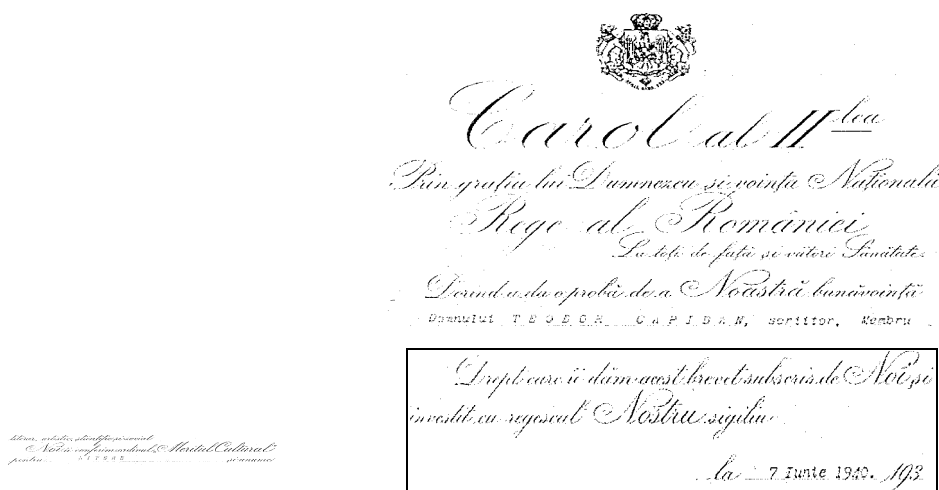 Carol al II lea
Prin grația lui Dumnezeu și voința Națională
Rege al României
La toți de față și viitori Sănătate.
Dorind a da o probă de a Noastră bunăvoință
Domnului TEODOR CAPIDAN, scriitor, Membru
Drept care îi dăm acest brevet subscris de Noi, și
investit cu regescul Nostru sigiliu
la 7 Iunie 1940. 193
literar, artistic, științific și social
Noi îi conferim ordinul „Meritul Cultural”
pentru LITERE și anume